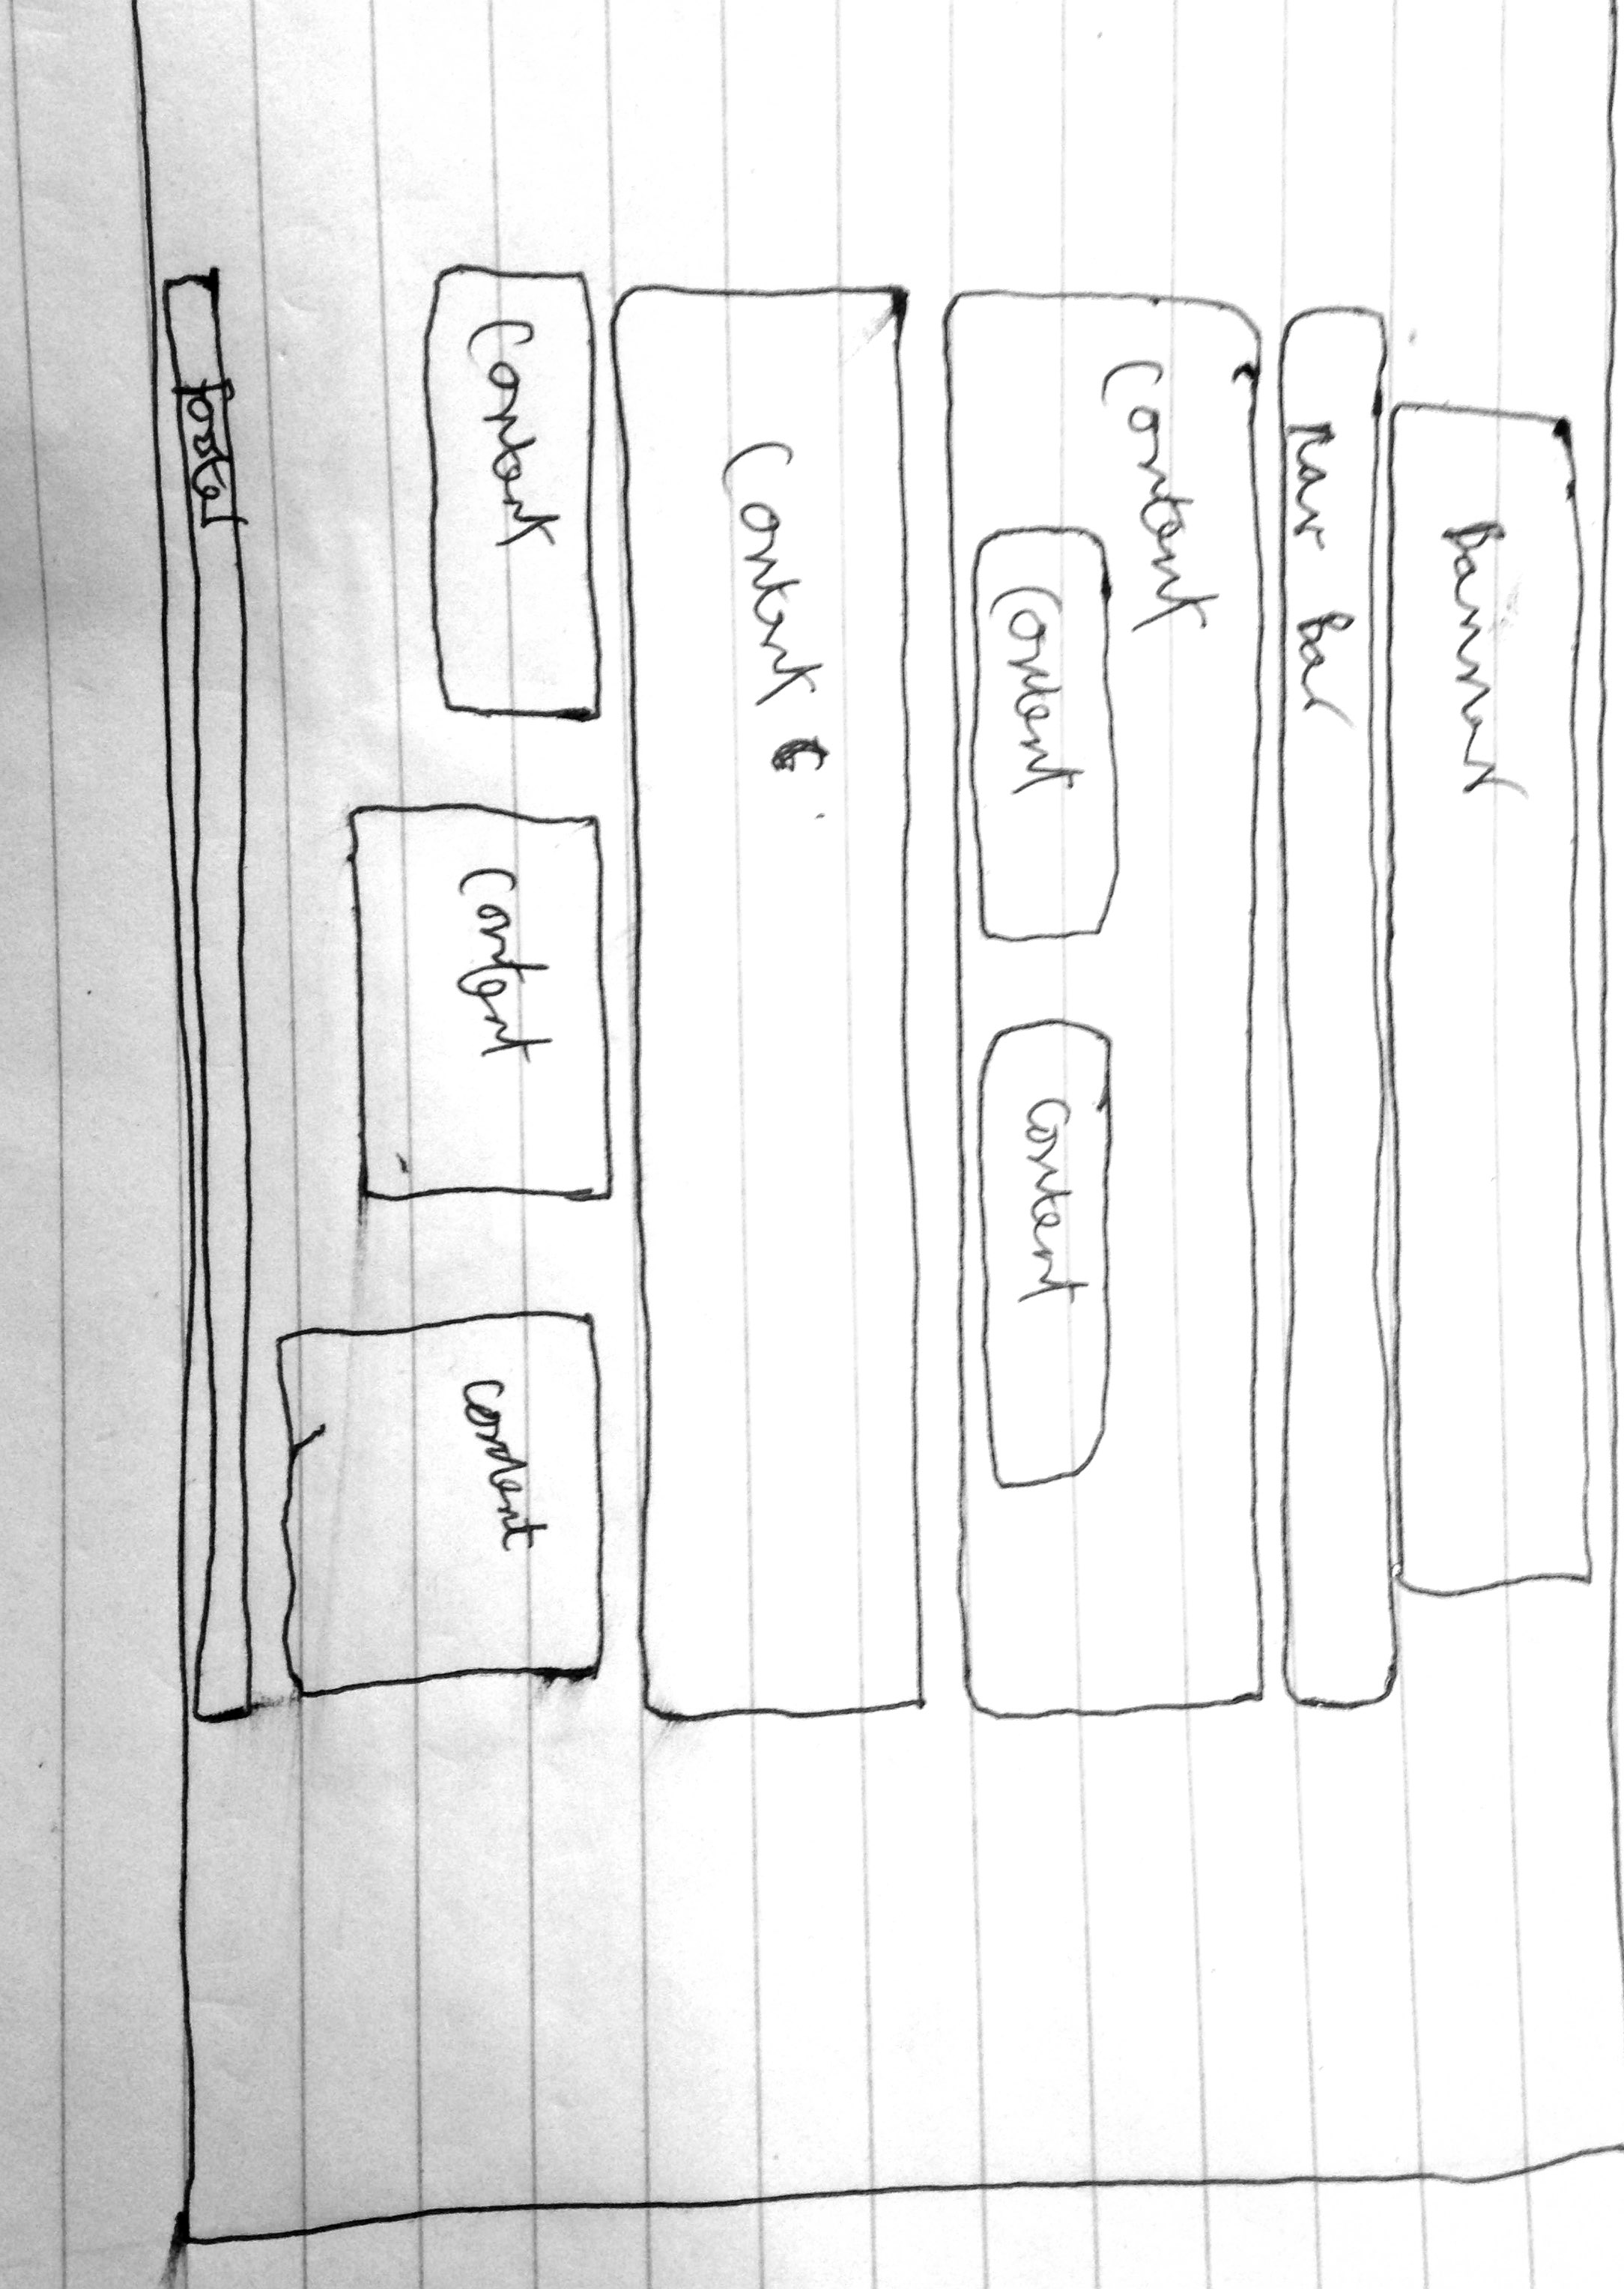 Banner
Nav bar
Content
Content
Content
Content
Content
Content
Content
footer